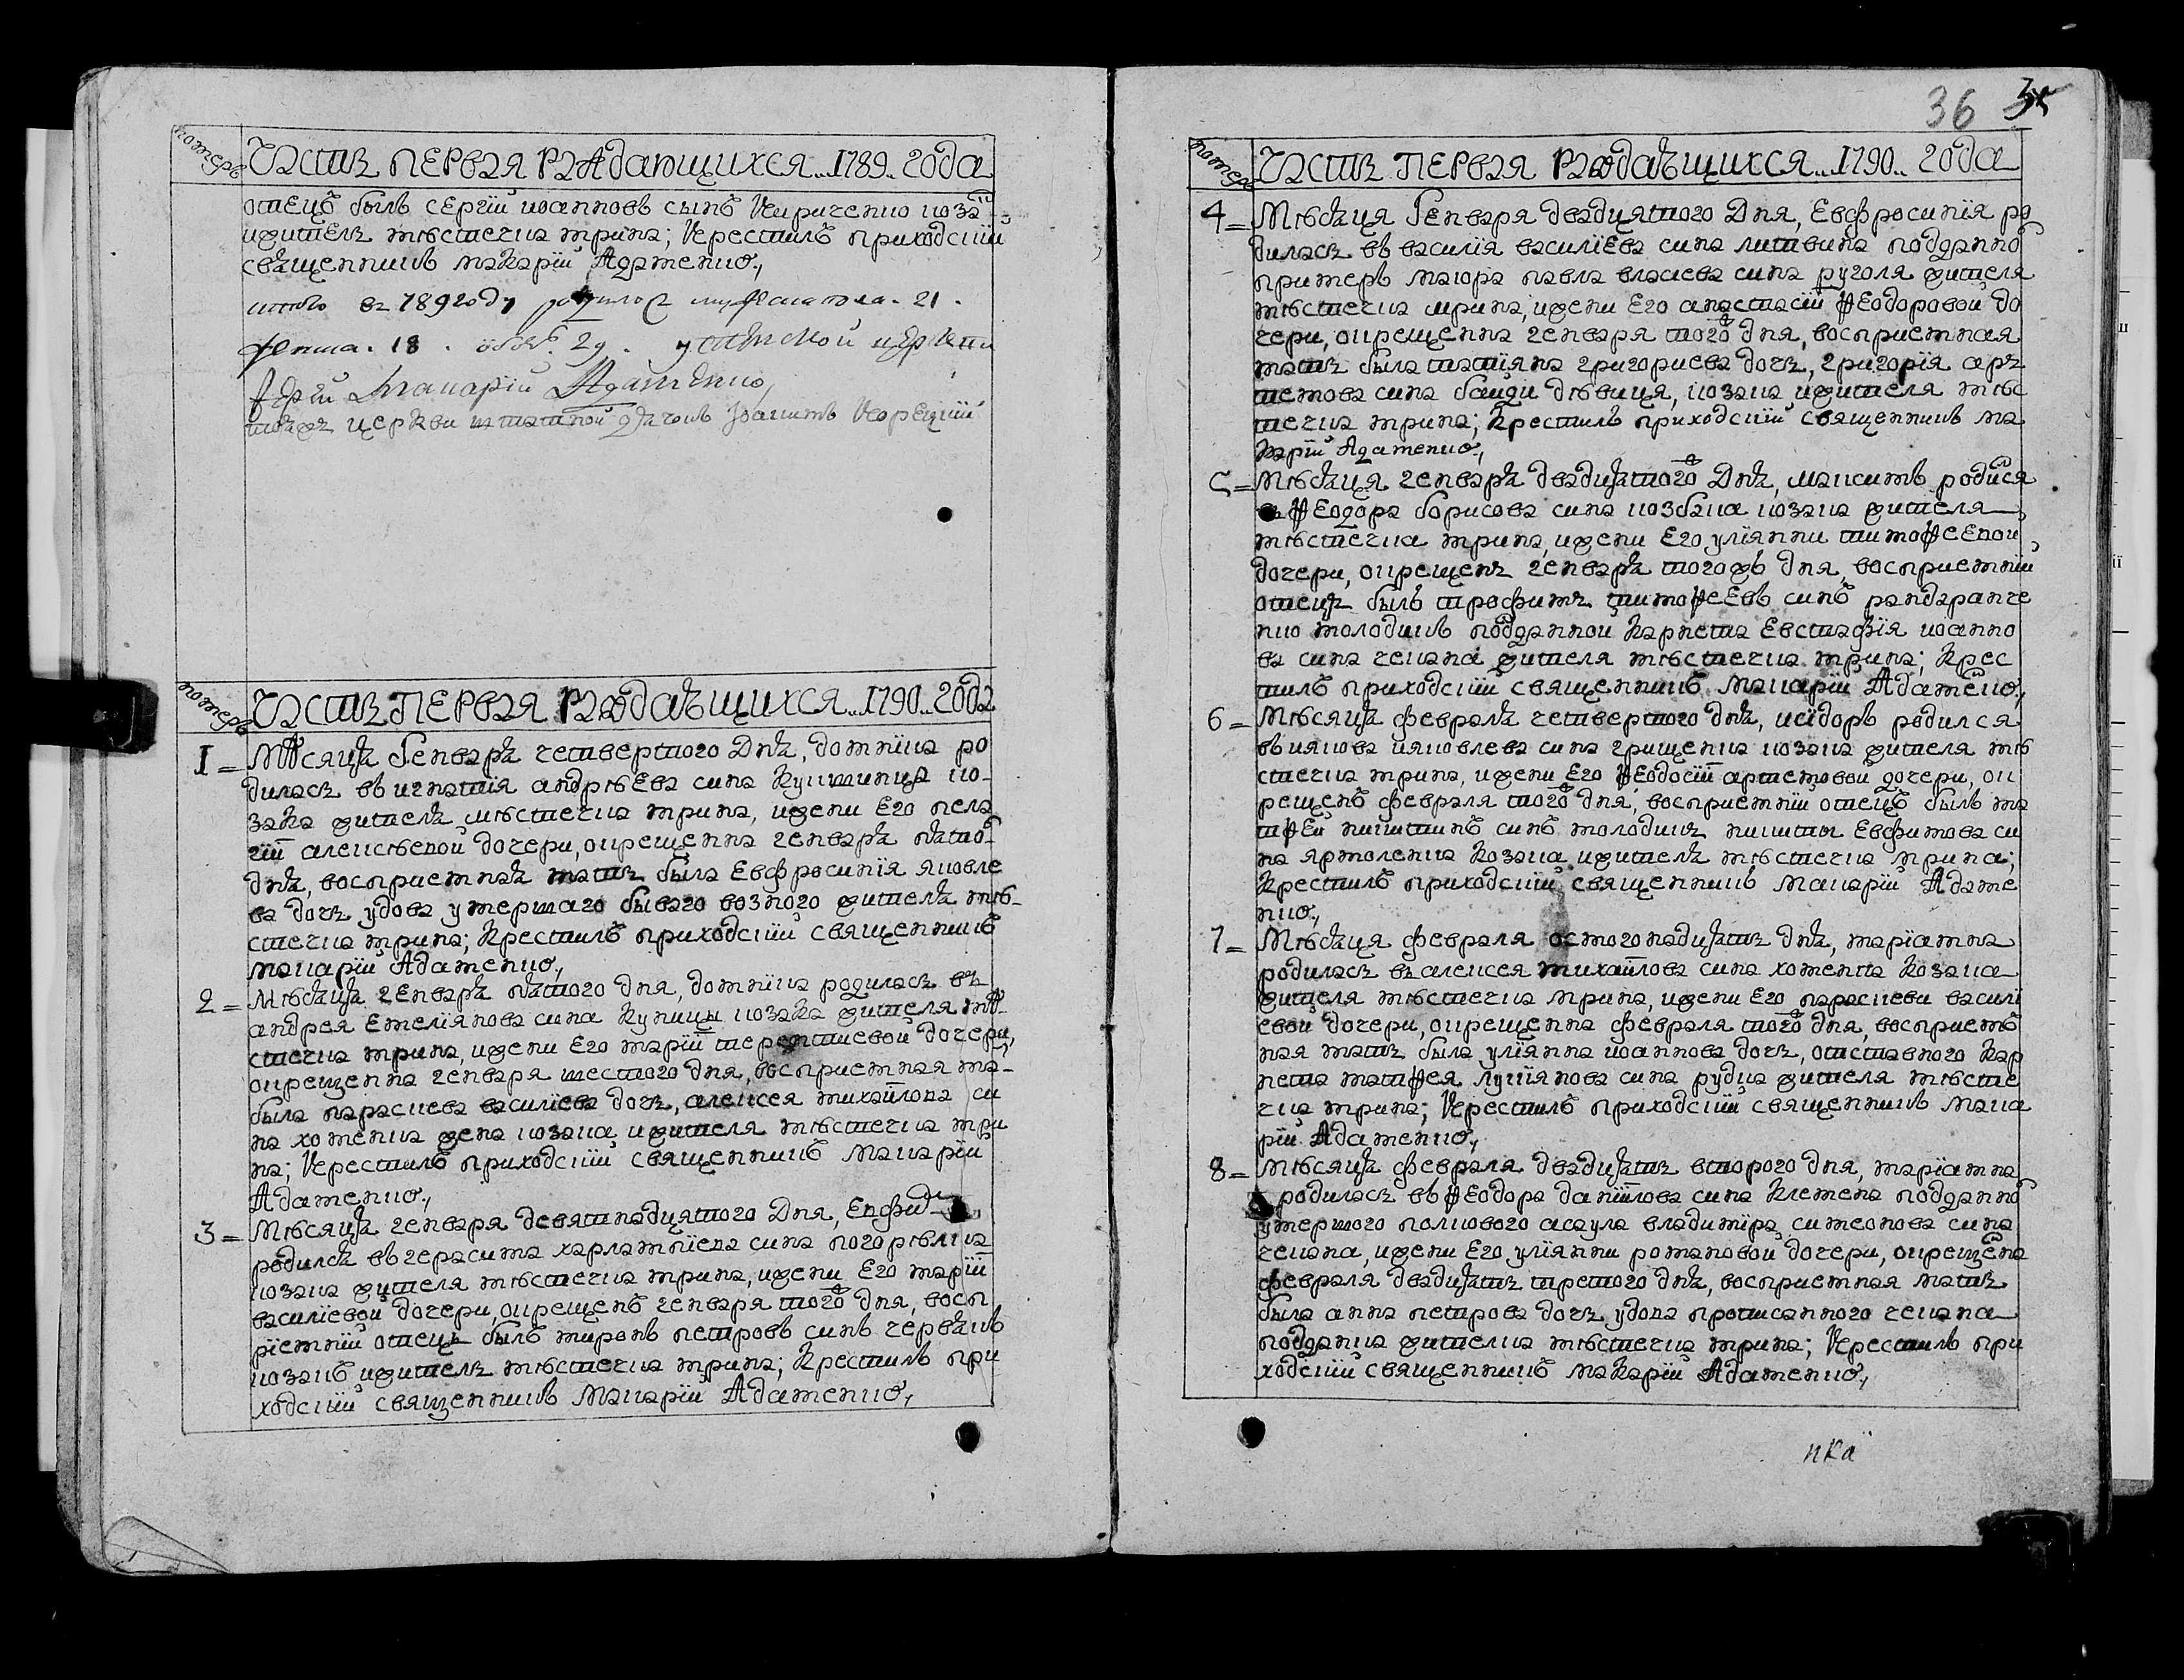 номеръ
Часть первая раждающихся 1789 года
отецъ былъ сергій иоанновъ сынъ Кириченко козакъ
ижитель мѣстечка мрина; Крестилъ приходскій
священникъ макарій Адаменко,
итого въ 789 году родилось мужеска пола 21
женска 18 обое. 39 успѣнской церкви
Іерей Макарій Адаменко,
тояжъ церкви штатной дячокъ Іоакимъ Корецкій
номеръ
Часть первая раждающихся 1790 года
1 = Мѣсяця Генваря четвертого дня, домникіа ро
дилась въ игнатія андрѣева сина кушинца ко-
зака жителя мѣстечка мрина, ижени его пела
гіи алексѣевой дочери, окрещенна генваря пятаго
дня, восприемная мать была Евфросинія яковле
ва дочь удова умершаго бывшаго возного жителя мѣ-
стечка мрина; Крестилъ приходскій священникъ
макарій Адаменко,
2 = Мѣсяця генваря пятого дня, домникіа родилась въ
андрея емеліянова сина купици козака жителя мѣ-
стечка мрина, ижени его маріи терентиевой дочери,
окрещенна генваря шестого дня, восприемная ма-
была параскева василіева дочь, алексея михайлова си
на хоменка жена козака ижителя мѣстечка мри
на; Крестилъ приходскій священникъ макарій
Адаменко,
3 = Мѣсяця генваря девятнадцятого дня,
родился въ герасима харлампіева сина погорѣлка
козака жителя мѣстечка мрина, ижени его маріи
василіевой дочери, окрещенъ генваря того дня, восп
ріемній отецъ былъ миронъ петровъ синъ червякъ
козакъ ижитель мѣстечка мрина; Крестилъ при
ходскій священникъ макарій Адаменко,
36
номеръ
Часть первая раждающихся 1790 года
4 = Мѣсяця Генваря двадцятого дня, Евфросинія ро
дилась въ василія василіева сина литвина подданно
примеръ маіора павла власиева сина руголя жителя
мѣстечка мрина, ижени его анастасіи Ѳеодоровой до
чери, окрещенна генваря того дня, восприемная
мать была татіяна григориева дочь, григорія ар
темова сина дѣвиця, козака ижителя мѣс
течка мрина; Крестилъ приходскій священникъ ма
карій Адаменко,
5 = Мѣсяця генваря двадцятого дня, максимъ родился
въ Ѳеодора борисова сина козбака козака жителя
мѣстечка мрина, ижени его уліянни тимоѲеевой
дочери, окрещенъ генваря тогожъ дня, восприемній
отецъ былъ трофимъ тимоѲеевъ синъ рандаранче
нко молодикъ подданной карнета Евстафія иоанно
ва сина чекана жителя мѣстечка мрина; Крес
тилъ приходскій священникъ макарій Адаменко,
6 = Мѣсяця февраля четвертого дня, исідоръ родился
въ иякова ияковлева сина грищенка козака жителя мѣ
стечка мрина, ижени его Ѳеодосіи артемовой дочери, ок
рещенъ февраля того дня, восприемній отецъ былъ ма
тѲей никитинъ синъ молодикъ никиты Евфимова си
на ярмоленка козака ижитель мѣстечка мрина;
Крестилъ приходскій священникъ макарій Адаме
нко,
7 = Мѣсяця февраля осмогонадцять дня, маріамна
родилась въ алексея михайлова сина хоменка козака
жителя мѣстечка мрина, ижени его параскеви василі
евой дочери, окрещенна февраля того дня, восприем
ная мать была уліянна иоаннова дочь, отставного кар
нета матѲея лукіянова сина рудка жителя мѣсте
чка мрина; Крестилъ приходскій священникъ мака
рій Адаменко,
8 = Мѣсяця февраля двадцять второго дня, маріамна
родилась въ Ѳеодора данілова сина клемена подданно
умершого полкового асаула владиміра симеонова сина
чекана, ижени его, уліянни романовой дочери, окрещена
февраля двадцять третого дня, восприемная мать
была анна петрова дочь удова прописанного чекана
подданка жителка мѣстечка мрина; Крестилъ при
ходскій священникъ макарій Адаменко,
нка